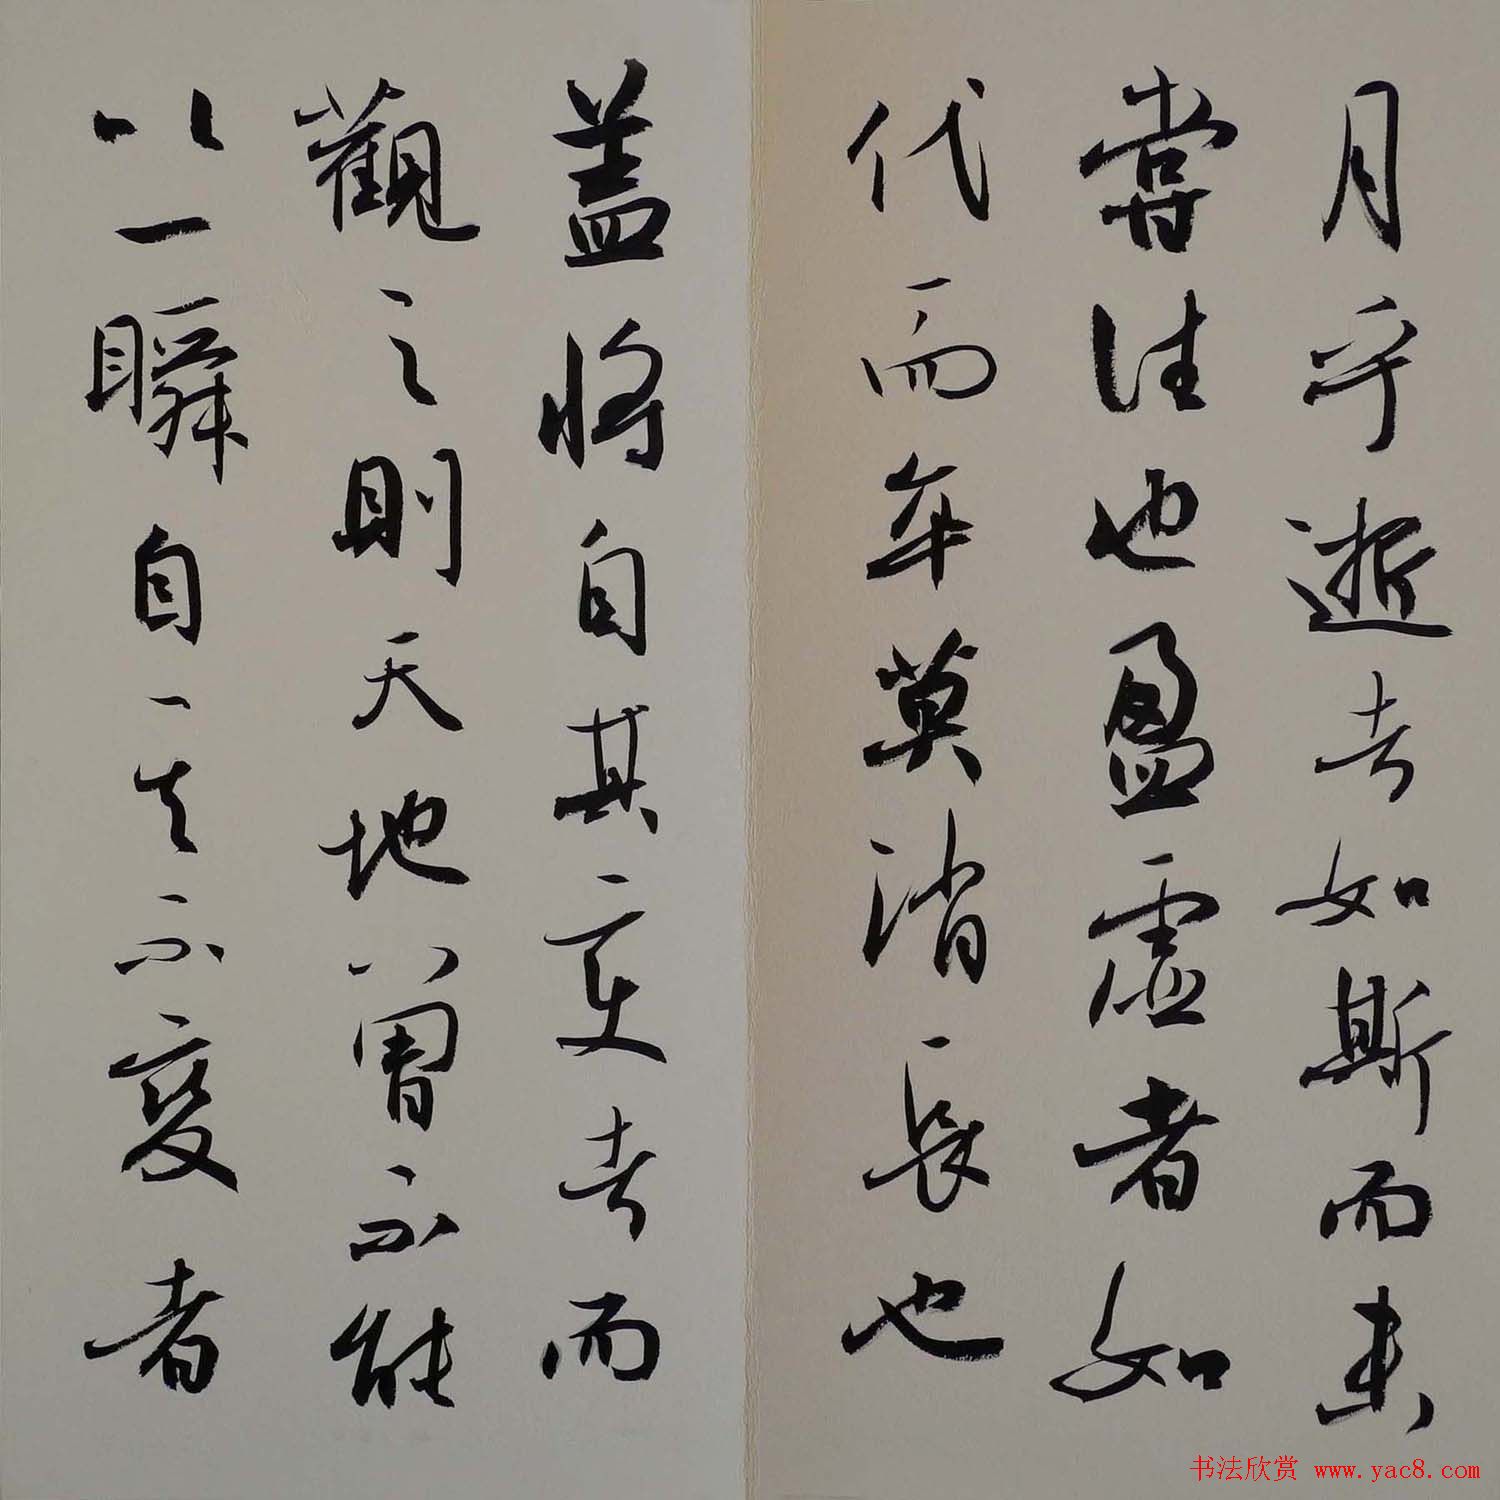 月乎逝者如斯而未
嘗往也盈虚者如
代而卒莫消長也
盖將自其变者而
觀之則天地曾不能
以一瞬自其不变者
书法欣赏 www.yac8.com